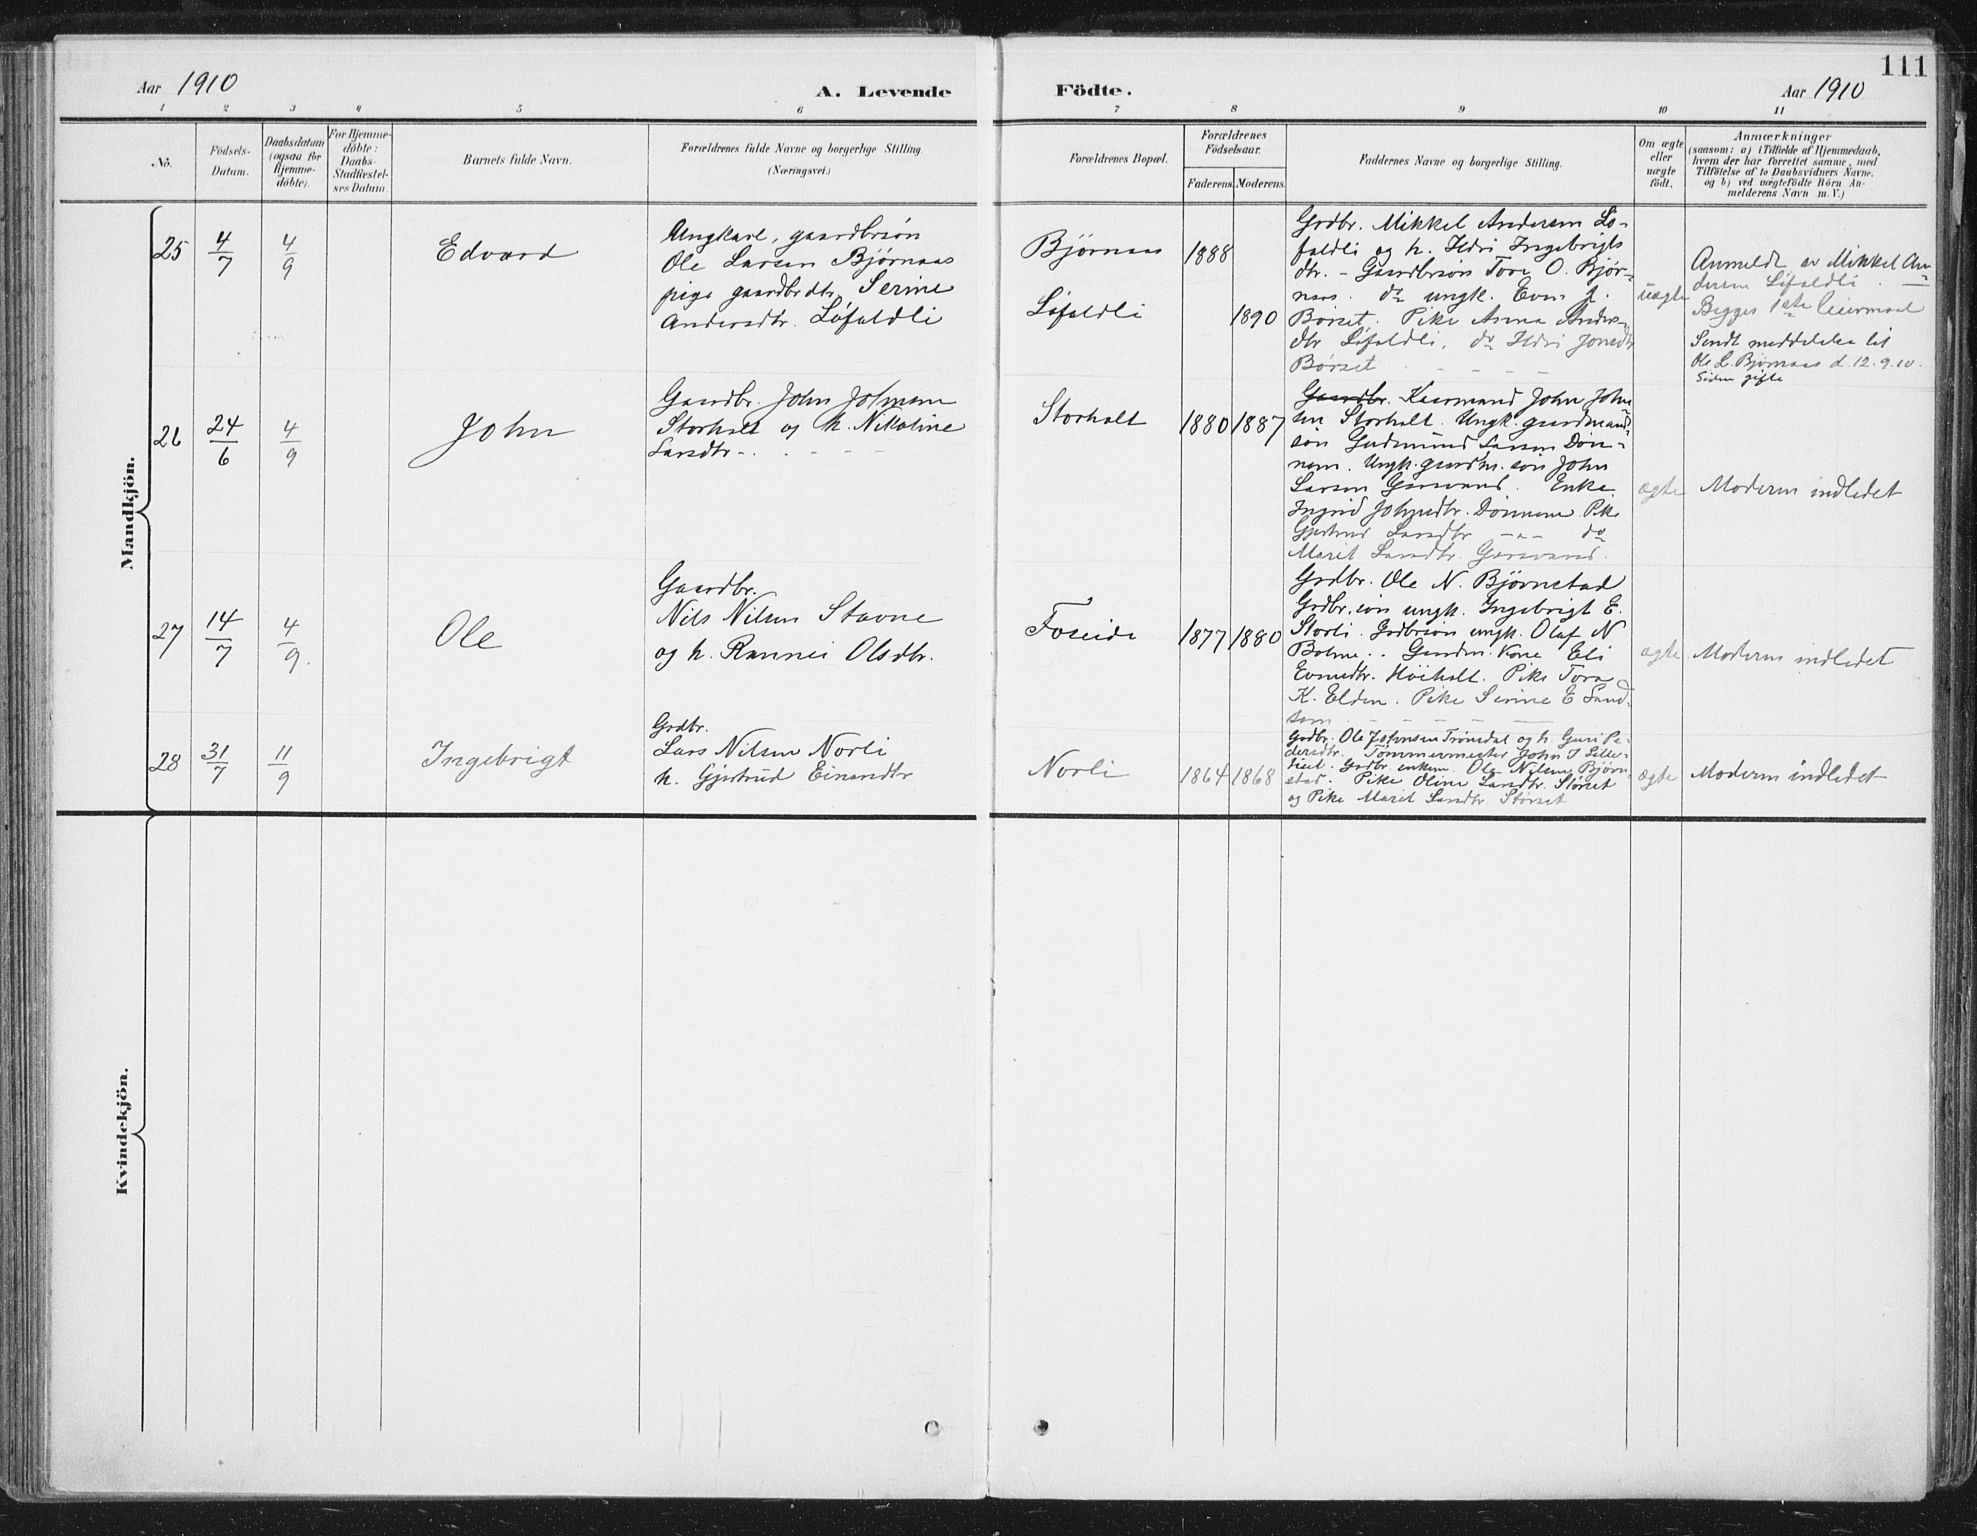 111
Aar 1910
A. Levende Födte.
Aar 1910
1 2 3 4 5 6 7 8 9 10 11
No.
Födsels-
Datum.
Daabsdatum
(ogsaa for
Hjemme-
döbte).
For Hjemme-
döbte:
Daabs-
Stadfæstel-
ses Datum
Barnets fulde Navn.
Forældrenes fulde Navne og borgerlige Stilling.
(Næringsvei.)
Forældrenes Bopæl.
Forældrenes
Födselsaar.
Faderens. Moderens.
Faddernes Navne og borgerlige Stilling.
Om ægte
eller
uægte
født.
Anmærkninger
(saasom: a) i Tilfælde af Hjemmedaab,
hvem der har forrettet samme, med
Tilföielse af to Daabsvidners Navne,
og b) ved uægtefödte Börn An-
melderens Navn m. V.)
Mandkjön.
25 4/7 4/9 Edvard
Ungkarl, gaardbrsön
Ole Larsen Bjørnaas
pige gaardbrdtr. Serine
Andersdtr. Løfaldli
Bjørnaas 1888
Løfaldli 1890
Grdbr. Mikkel Andersen Lø-
faldli og h. Ildri Ingebrigts
dtr. - Gaardbrsön Tore O. Bjør-
naas. do ungk. Even J.
Børset. Pike Anna Anders-
dtr Løfaldli. do Ildri Jonsdtr
Børset - - - -
uægte
Anmeldt av Mikkel An-
dersen Løfaldli.
Begges 1ste leiermaal
Sendt meddelelse til
Ole L. Bjørnaas d. 12.9.10.
Siden gifte
26 24/6 4/9 John
Gaardbr. John Johnsen
Storholt og h. Nikoline
Larsdtr - . - - -
Storholt 1880 1887
Gaardbr. Kaarmand John John
sen Storholt. Ungk. gaardmand-
sön Gudmund Larsen Dön-
nem. Ungk. gaardm. sön John
Larsen Garsvand. Enke
Ingrid Johnsdtr. Dönnem. Pike
Gjertrud Larsdtr - " - do
Marit Larsdtr. Garsvand.
ægte Moderen indledet
27 14/7 4/9. Ole
Gaardbr.
Nils Nilsen Stavne
og h. Rannei Olsdtr.
Foseide 1877 1880
Grdbr. Ole N. Bjørnstad
Grdbr.sön ungk. Ingebrigt E.
Storli. Grdbrsön ungk. Olaf N
Bolme.. Gaardm. Kone Eli
Evensdtr. Höiholt. Pike Tora
K. Elden. Pike Serine E Sand-
ægte Moderen indledet
28 31/7 11/9 Ingebrigt
Grdbr.
Lars Nilsen Norli
h. Gjertrud Einarsdtr
Norli 1864 1868
Grdbr. Ole Johnsen Trönsdal og h. Guri Pe-
dersdtr. Tømmermester John I Lille-
Grdbr. enkem. Ole Nilsen Bjørn-
stad. Pike Oline Larsdtr. Størset
og Pike Marit Larsdtr. Størset
ægte Moderen indledet
Kvindekjön.